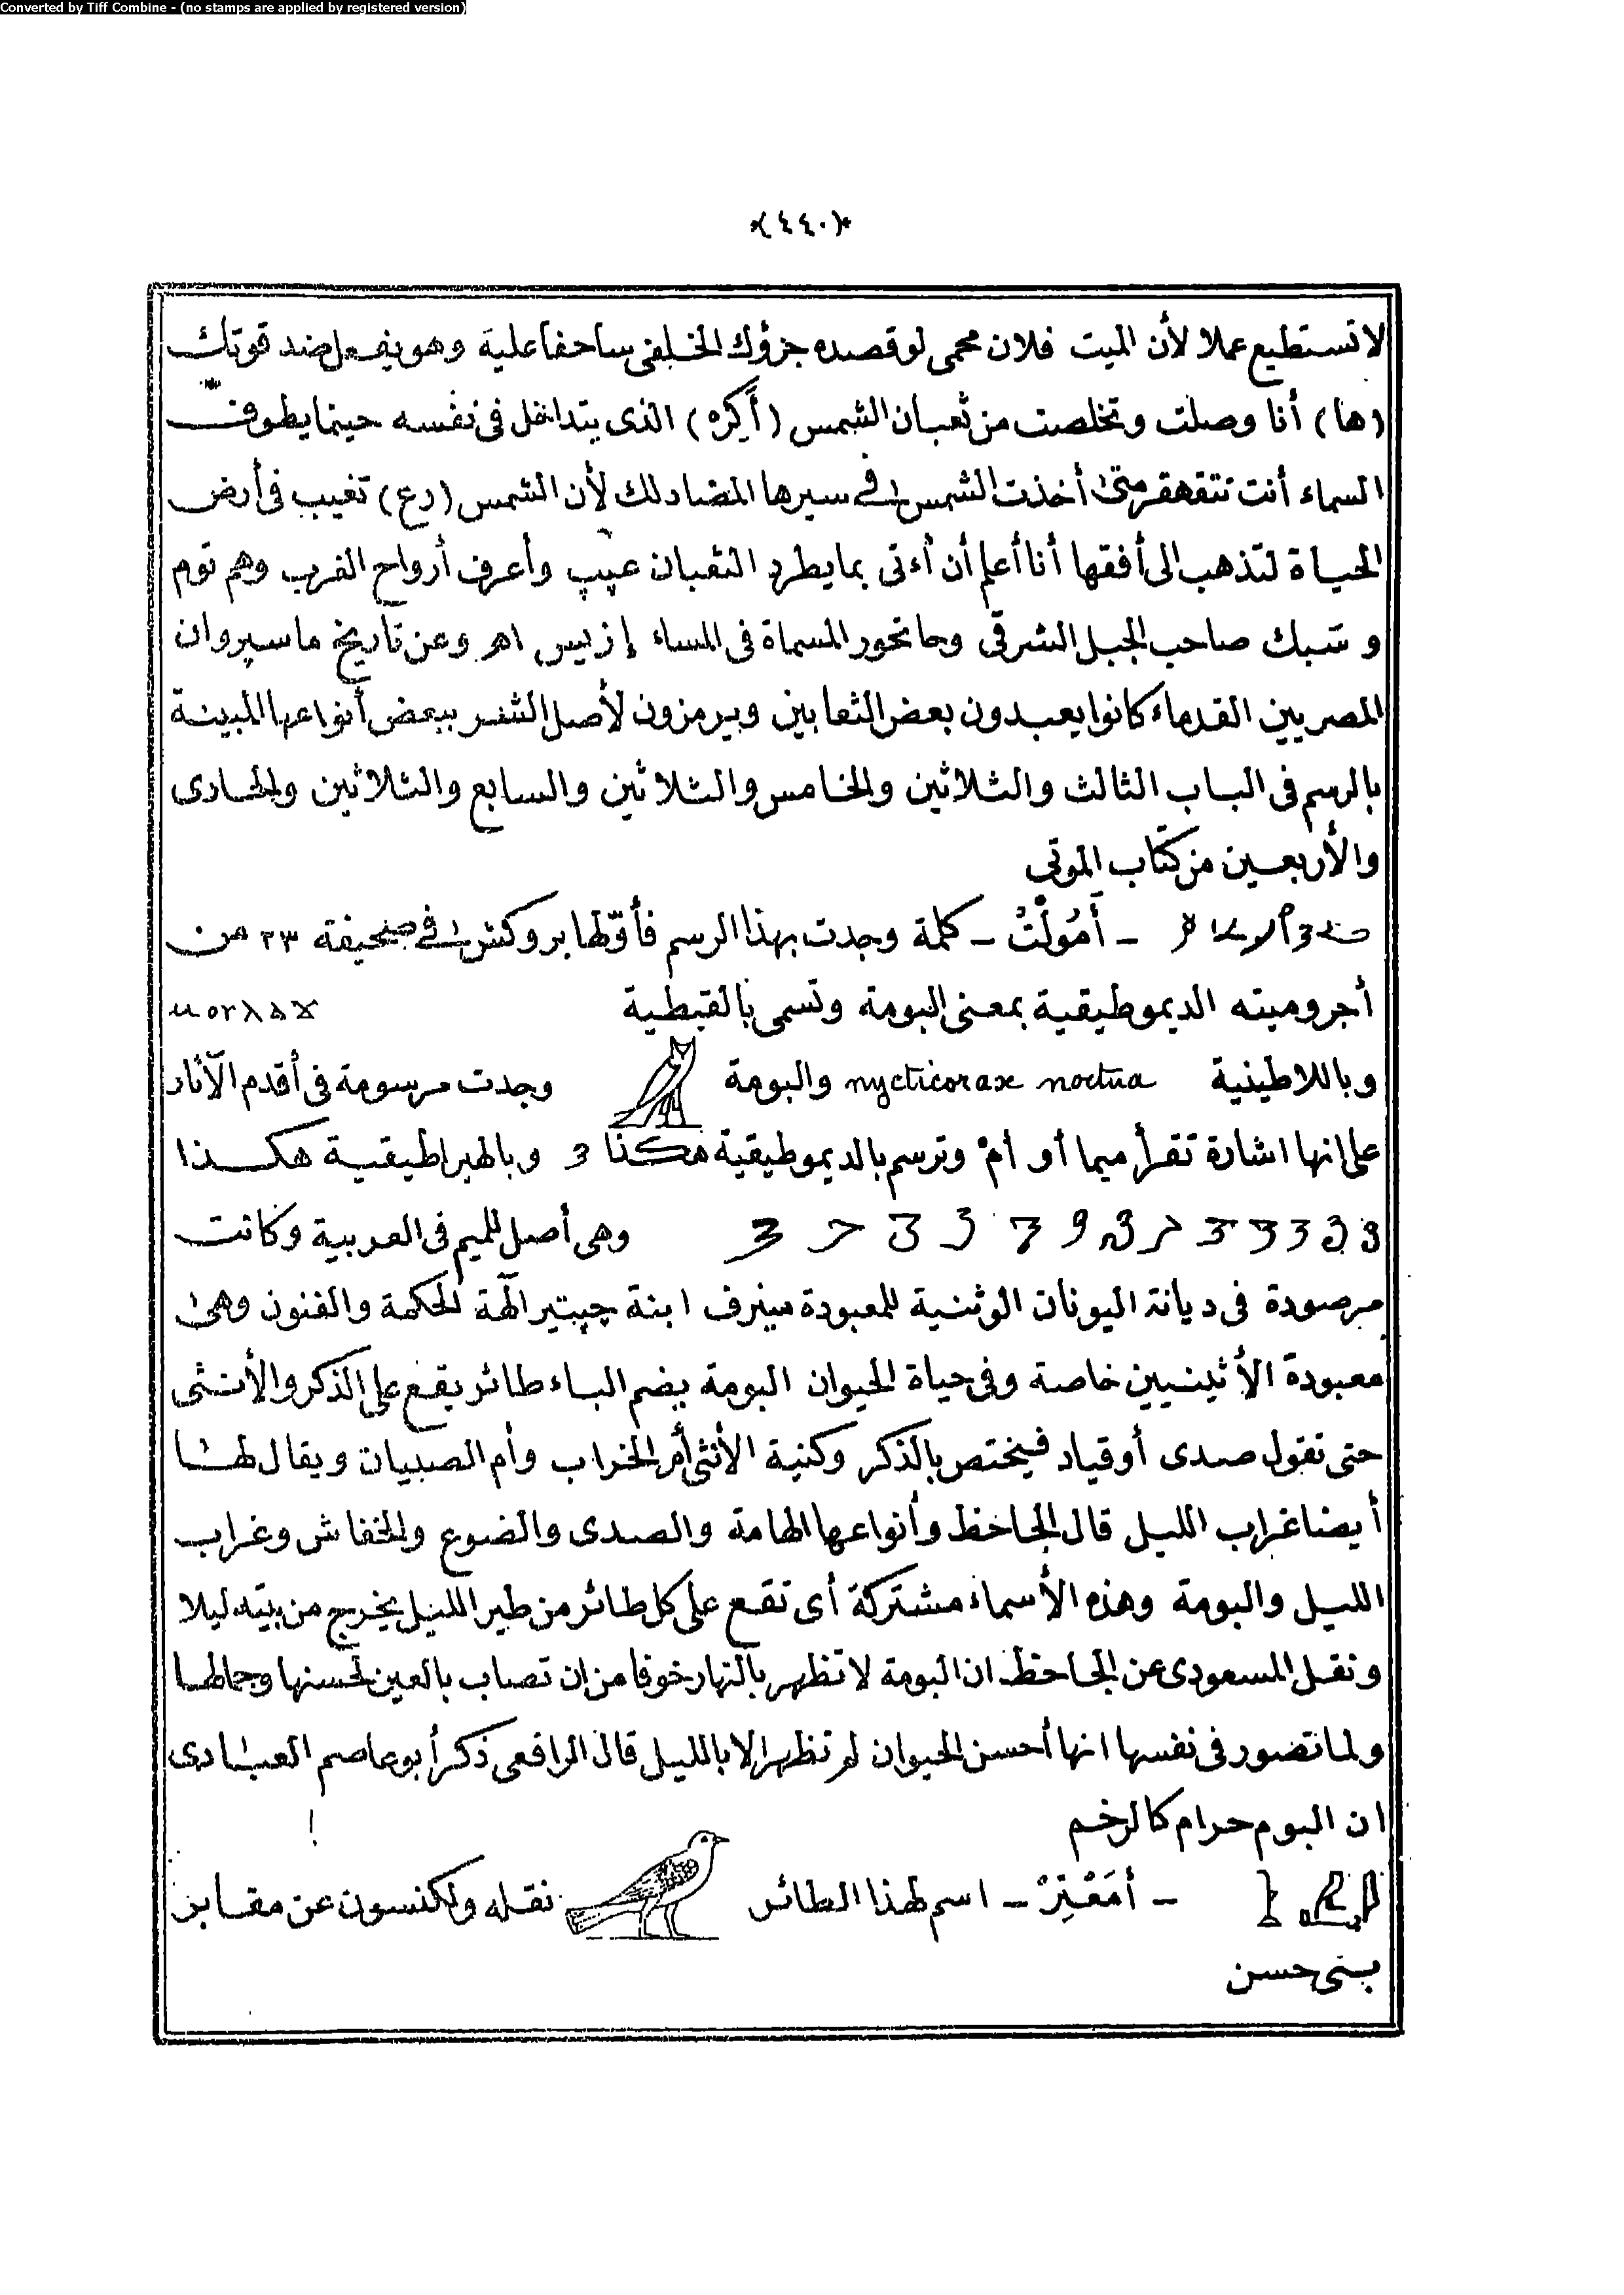 Converted by Tiff Combine - (no stamps are applied by registered version)
﴿٤٤٠﴾
لا تستطيع عملا لأن الميت فلان محمى لو قصده جزؤك الخلفى ساحفا عليه وهو يفعل ضد قوتك
(ها) أنا وصلت وتخلصت من ثعبان الشمس (أَكِرْه) الذى يتداخل فى نفسه حينما يطوف
السماء أنت تتقهقر متى أخذت الشمس فى سيرها المضاد لك لأن الشمس (رع) تغيب فى أرض
الحياة لتذهب الى أفقها أنا أعلم أن أءتى بما يطرد الثعبان عپپ وأعرف أرواح الغرب وهم توم
و سَبك صاحب الجبل الشرقى وحاتحور المسماة فى المساء إزيس اهر وعن تاريخ ماسپرو ان
المصريين القدماء كانوا يعبدون بعض الثعابين ويرمزون لأصل الشر ببعض أنواعها المبينة
بالرسم فى الباب الثالث والثلاثين والخامس والثلاثين والسابع والثلاثين والحادى
والأربعين من كتاب الموتى
– أَمُولْتُ – كلمة وجدت بهذا الرسم فأوّلها بروكش فى صحيفة ٢٣ من
أجروميته الديموطيقية بمعنى البومة وتسمى بالقبطية ⲙⲟⲩⲗⲁϫ
وباللاطينية nycticorax noctua والبومة وجدت مرسومة فى أقدم الآثار
على انها اشارة تقرأ ميما أو أمْ وترسم بالديموطيقية هكذا 3 وبالهيراطيقية هكذا
وهى أصل للميم فى العربية وكانت
مرصودة فى ديانة اليونان الوثنية للمعبودة مينرف ابنة چپتير الٰهة الحكمة والفنون وهى
معبودة الأثينيين خاصة وفى حياة الحيوان البومة بضم الباء طائر يقع على الذكر والأنثى
حتى تقول صدى أو قياد فيختص بالذكر وكنية الأنثى أم الخراب وأم الصبيان ويقال لها
أيضا غراب الليل قال الجاحظ وأنواعها الهامة والصدى والضوع والخفاش وغراب
الليل والبومة وهذه الأسماء مشتركة أى تقع على كل طائر من طير الليل يخرج من بيته ليلا
ونقل المسعودى عن الجاحظ ان البومة لا تظهر بالنهار خوفا من ان تصاب بالعين لحسنها وجمالها
ولما تصور فى نفسها انها أحسن الحيوان لم تظهر الا بالليل قال الرافعى ذكر أبو عاصم العبادى
ان البوم حرام كالرخم
– أمَعْنِرْ – اسم لهذا الطائر نقله ولكنسون عن مقابر
بنى حسن